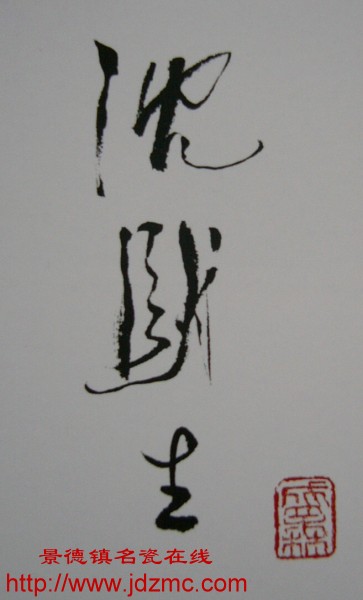 沈
生
景德镇名瓷在线
http://www.jdzmc.com/